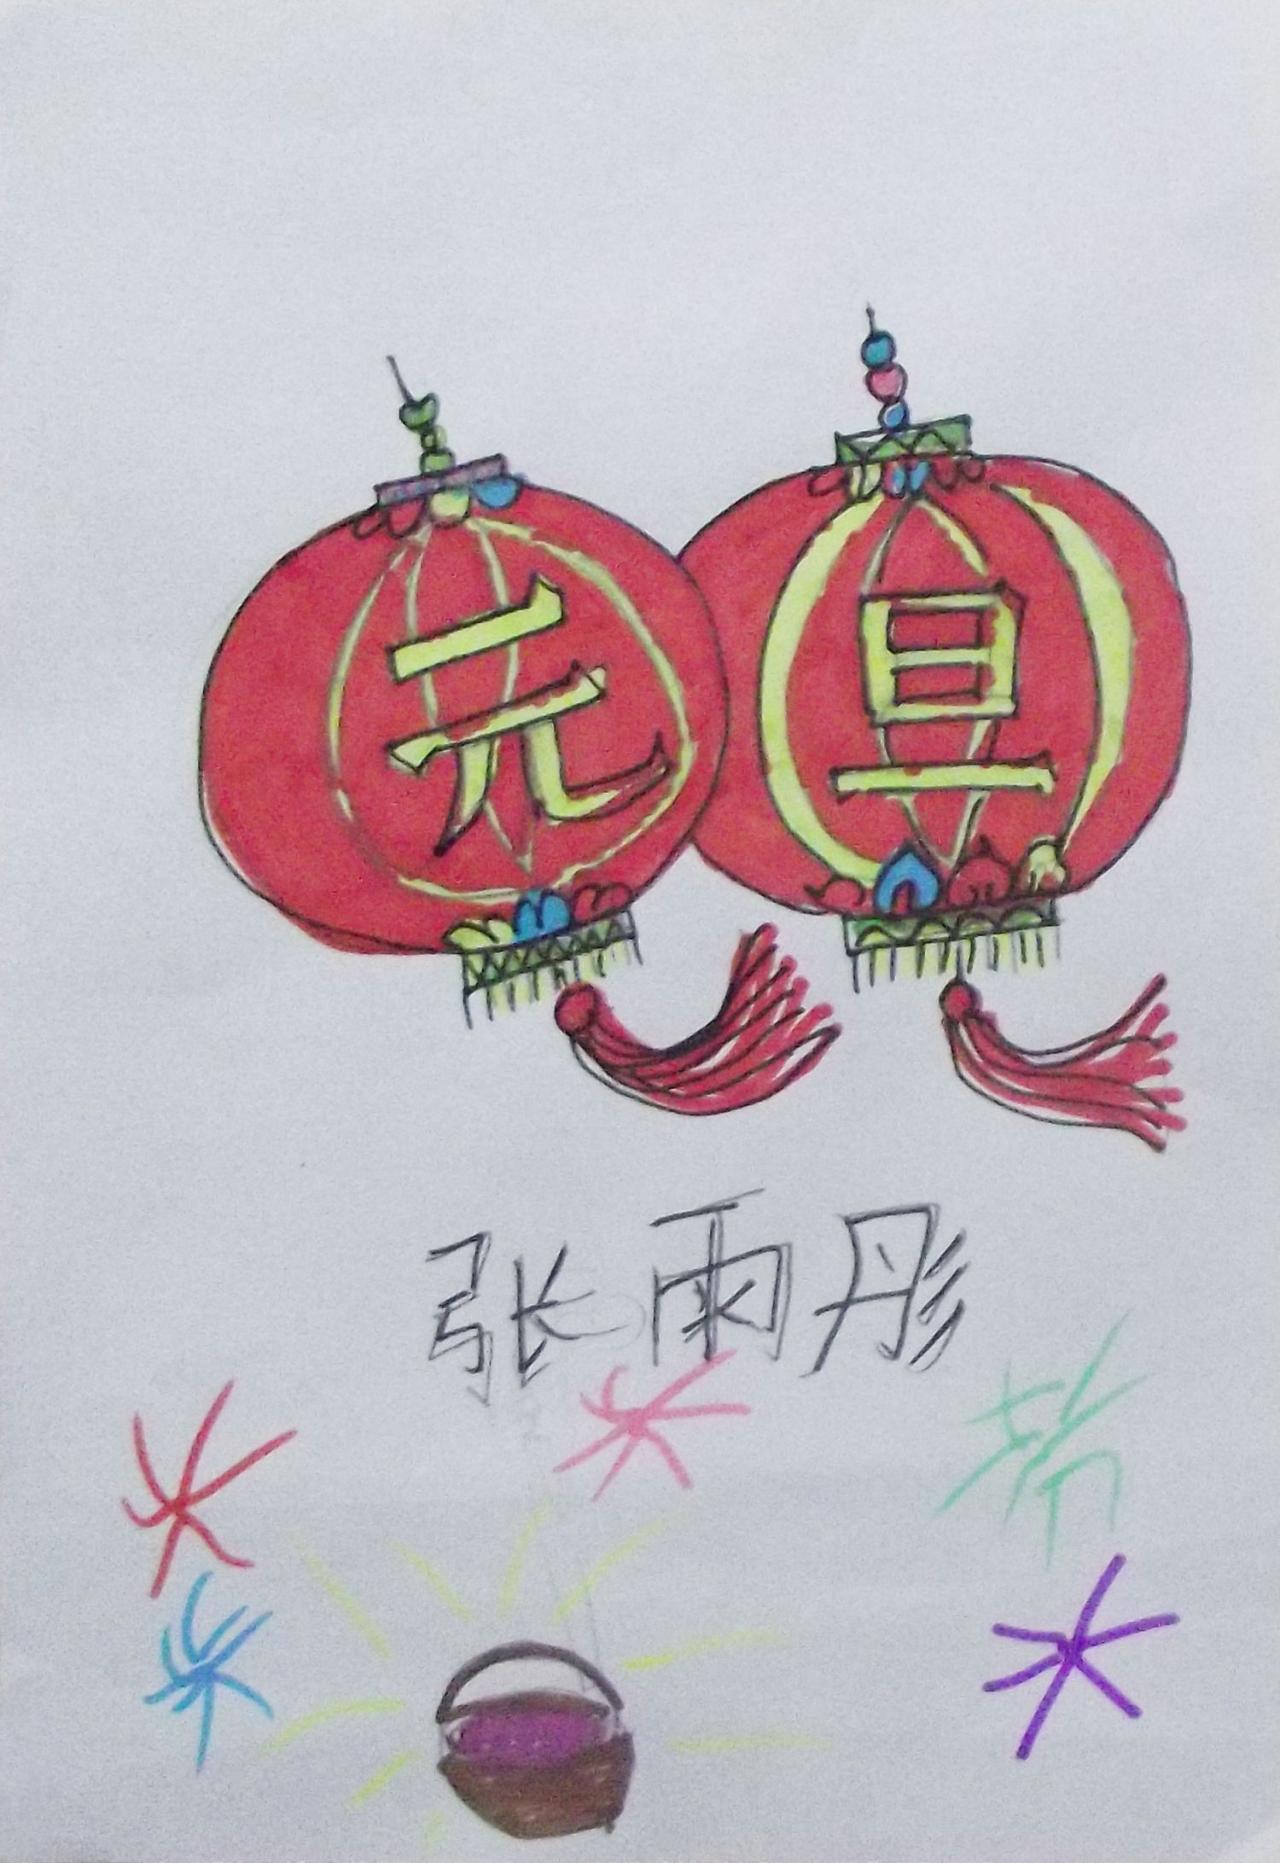 元旦
张雨彤